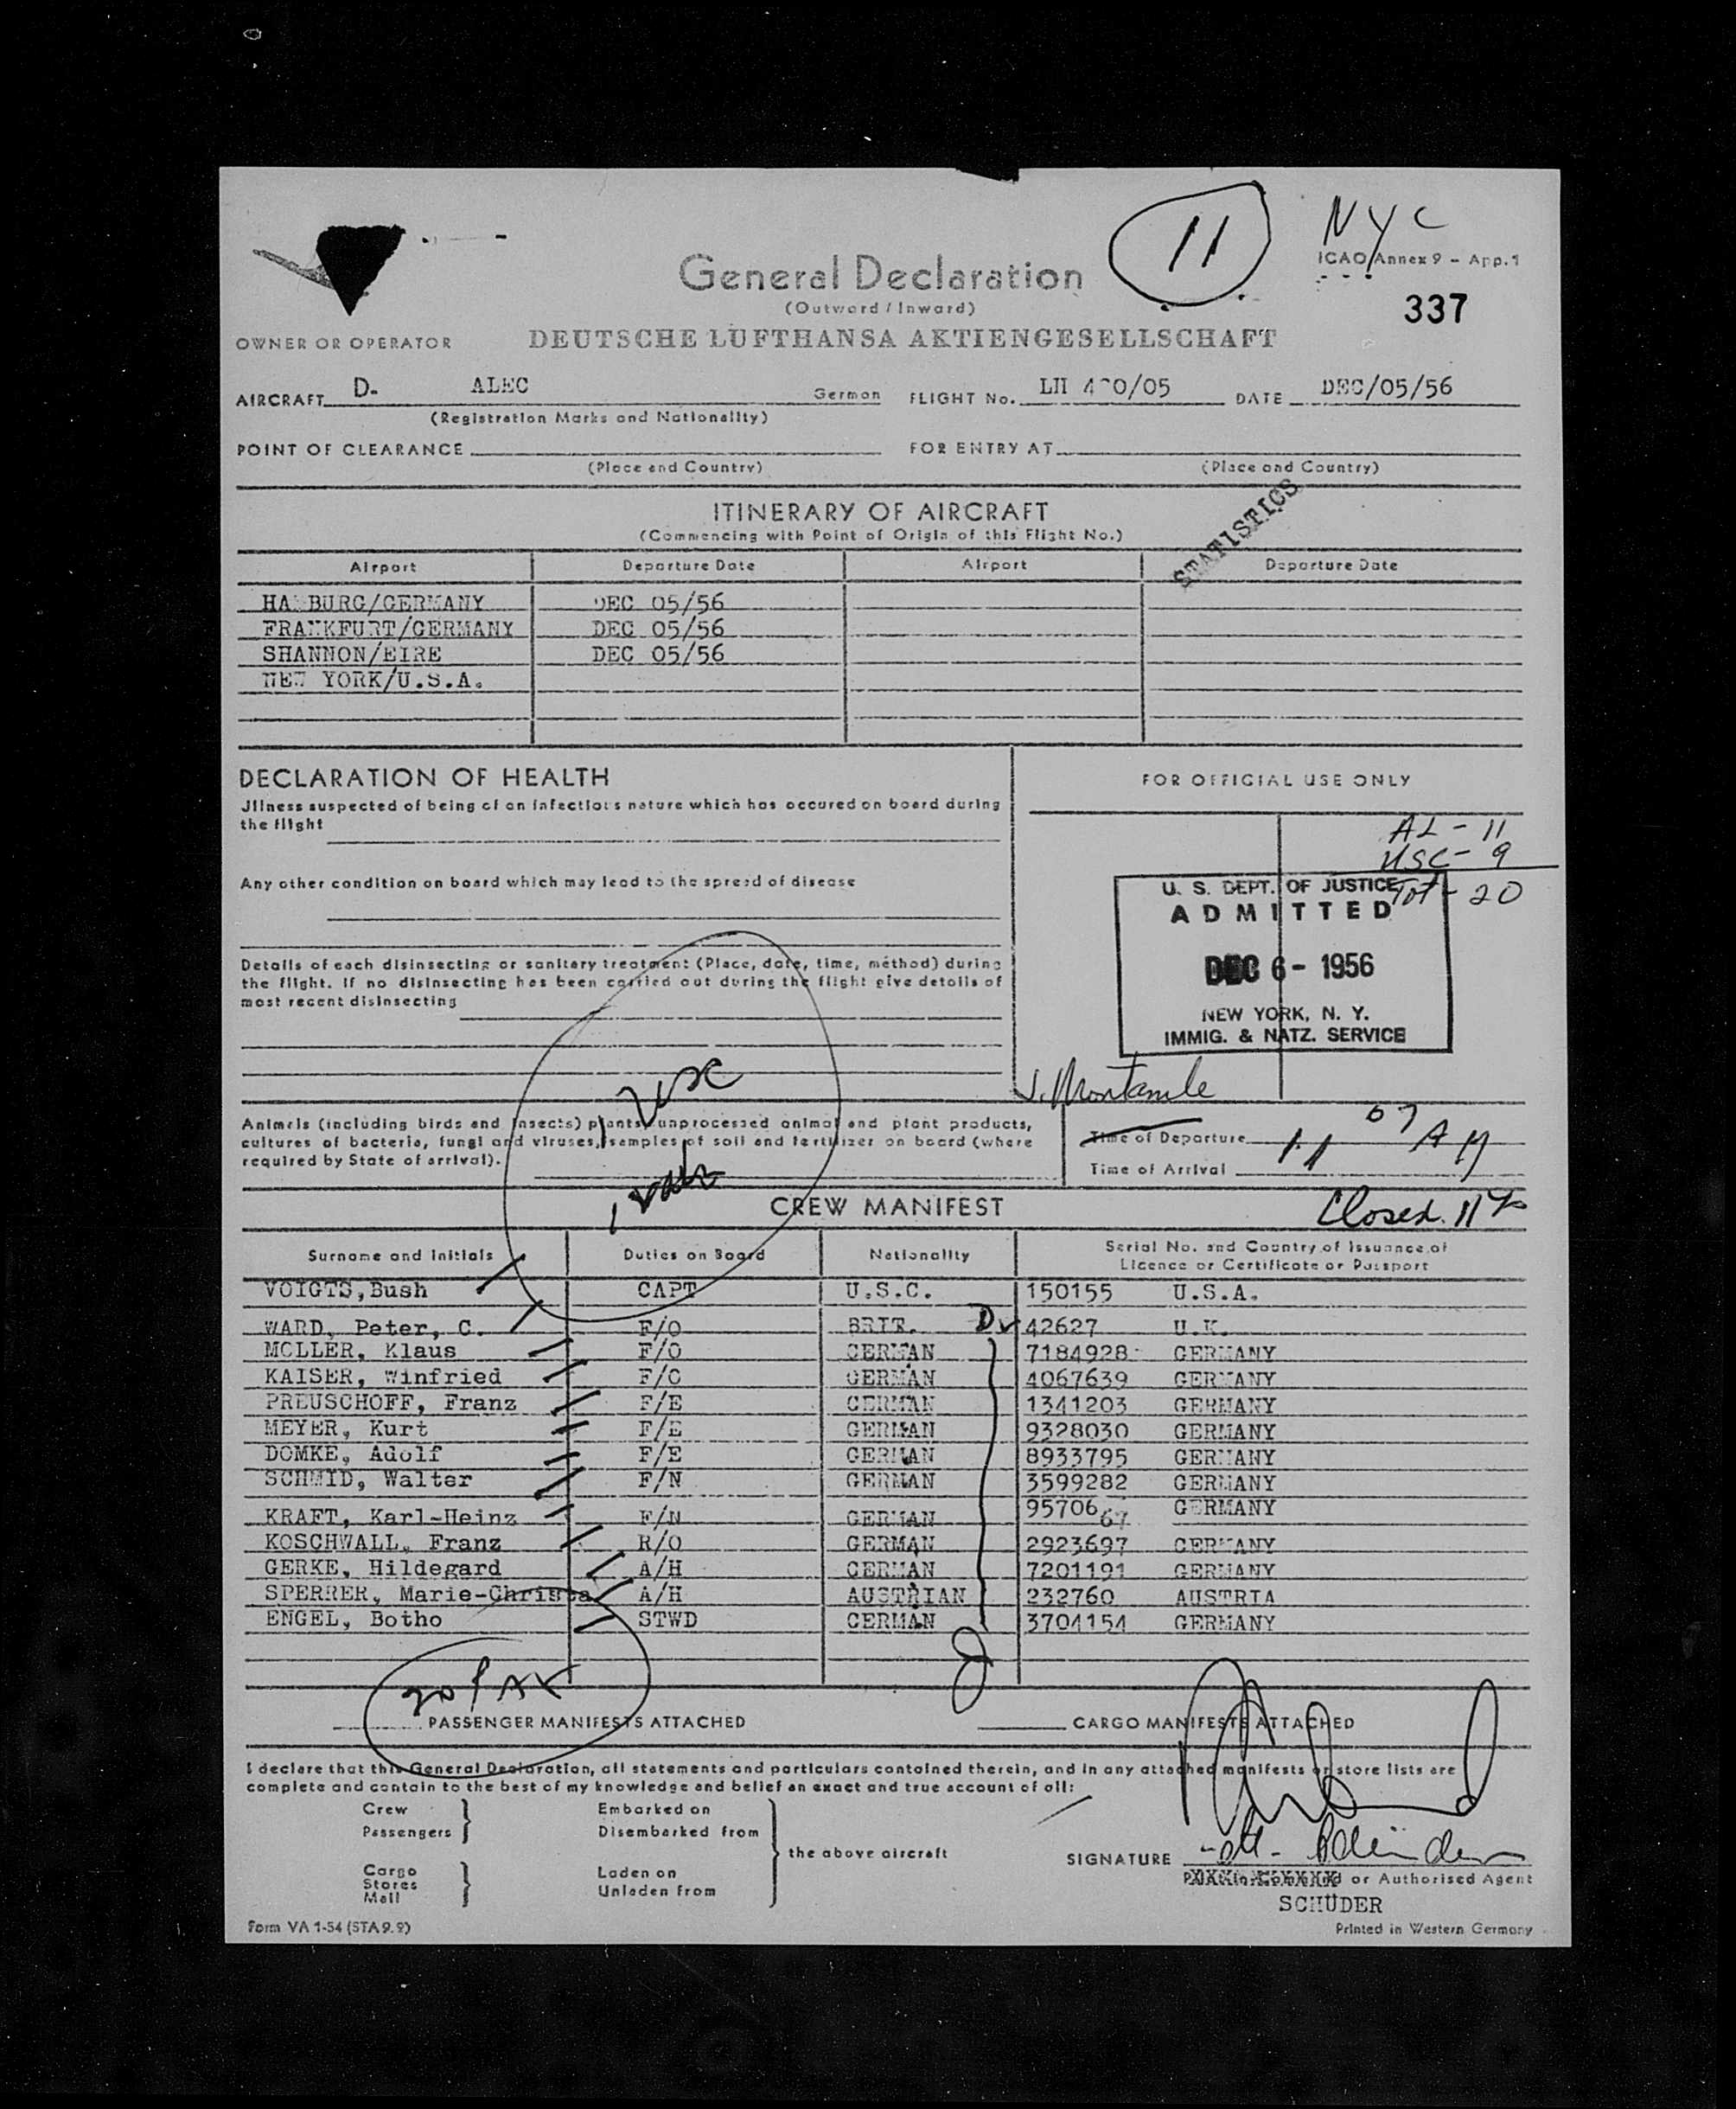 11
NYC
General Declaration
ICAO Annex 9 - App. 1
(Outward / Inward)
337
OWNER OR OPERATOR DEUTSCHE LUFTHANSA AKTIENGESELLSCHAFT
AIRCRAFT D- ALEC German FLIGHT No. LH /05 DATE DEC/05/56
(Registration Marks and Nationality)
POINT OF CLEARANCE FOR ENTRY AT
(Place and Country) (Place and Country)
STATISTICS
ITINERARY OF AIRCRAFT
(Commencing with Point of Origin of this Flight No.)
Airport Departure Date Airport Departure Date
HAMBURG/GERMANY DEC 05/56
FRANKFURT/GERMANY DEC 05/56
SHANNON/EIRE DEC 05/56
NEW YORK/U.S.A.
DECLARATION OF HEALTH
FOR OFFICIAL USE ONLY
Jllness suspected of being of an infectious nature which has occured on board during
the flight
AL - 11
USC - 9
Tot - 20
Any other condition on board which may lead to the spread of disease
U. S. DEPT. OF JUSTICE
ADMITTED
DEC 6 - 1956
NEW YORK, N. Y.
IMMIG. & NATZ. SERVICE
Details of each disinsecting or sanitary treatment (Place, date, time, method) during
the flight. If no disinsecting has been carried out during the flight give details of
most recent disinsecting
1 USC
Animals (including birds and insects) plants, unprocessed animal and plant products,
cultures of bacteria, fungi and viruses, samples of soil and fertilizer on board (where
required by State of arrival).
Time of Departure
Time of Arrival 11 07 AM
CREW MANIFEST
Closed 11
Surname and Initials Duties on Board Nationality Serial No. and Country of Issuance of
Licence or Certificate or Passport
VOIGTS, Bush CAPT U.S.C. 150155 U.S.A.
WARD, Peter, C. F/O BRIT. D 42627 U.K.
MOLLER, Klaus F/O GERMAN 7184928 GERMANY
KAISER, Winfried F/O GERMAN 4067639 GERMANY
PREUSCHOFF, Franz F/E GERMAN 1341203 GERMANY
MEYER, Kurt F/E GERMAN 9328030 GERMANY
DOMKE, Adolf F/E GERMAN 8933795 GERMANY
SCHMID, Walter F/N GERMAN 3599282 GERMANY
KRAFT, Karl-Heinz F/N GERMAN 9570667 GERMANY
KOSCHWALL, Franz R/O GERMAN 2923697 GERMANY
GERKE, Hildegard A/H GERMAN 7201191 GERMANY
SPERRER, Marie-Christa A/H AUSTRIAN 232760 AUSTRIA
ENGEL, Botho STWD GERMAN 3704154 GERMANY
20 PAX
PASSENGER MANIFESTS ATTACHED CARGO MANIFESTS ATTACHED
I declare that this General Declaration, all statements and particulars contained therein, and in any attached manifests or store lists are
complete and contain to the best of my knowledge and belief an exact and true account of all:
Crew Embarked on
Passengers Disembarked from
the above aircraft
Cargo Laden on
Stores
Mail Unladen from
SIGNATURE
or Authorised Agent
SCHÜDER
Form VA 1-54 (STA 9.9)
Printed in Western Germany